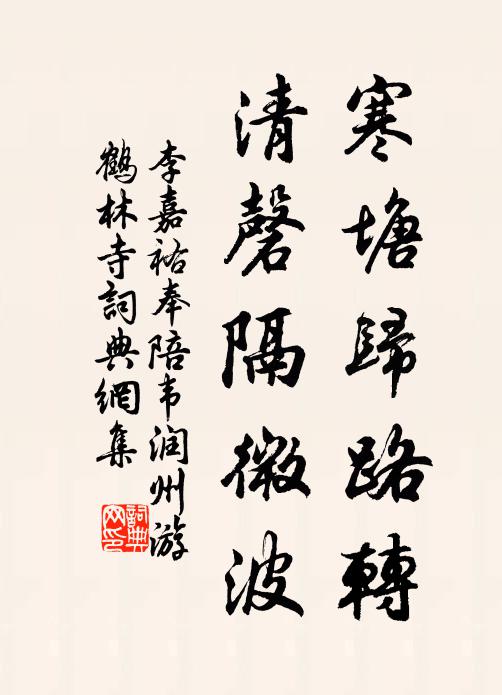 寒塘歸路轉
清磬隔微波
李嘉祐奉陪韦润州游
鶴林寺詞典網集
詞典
网印